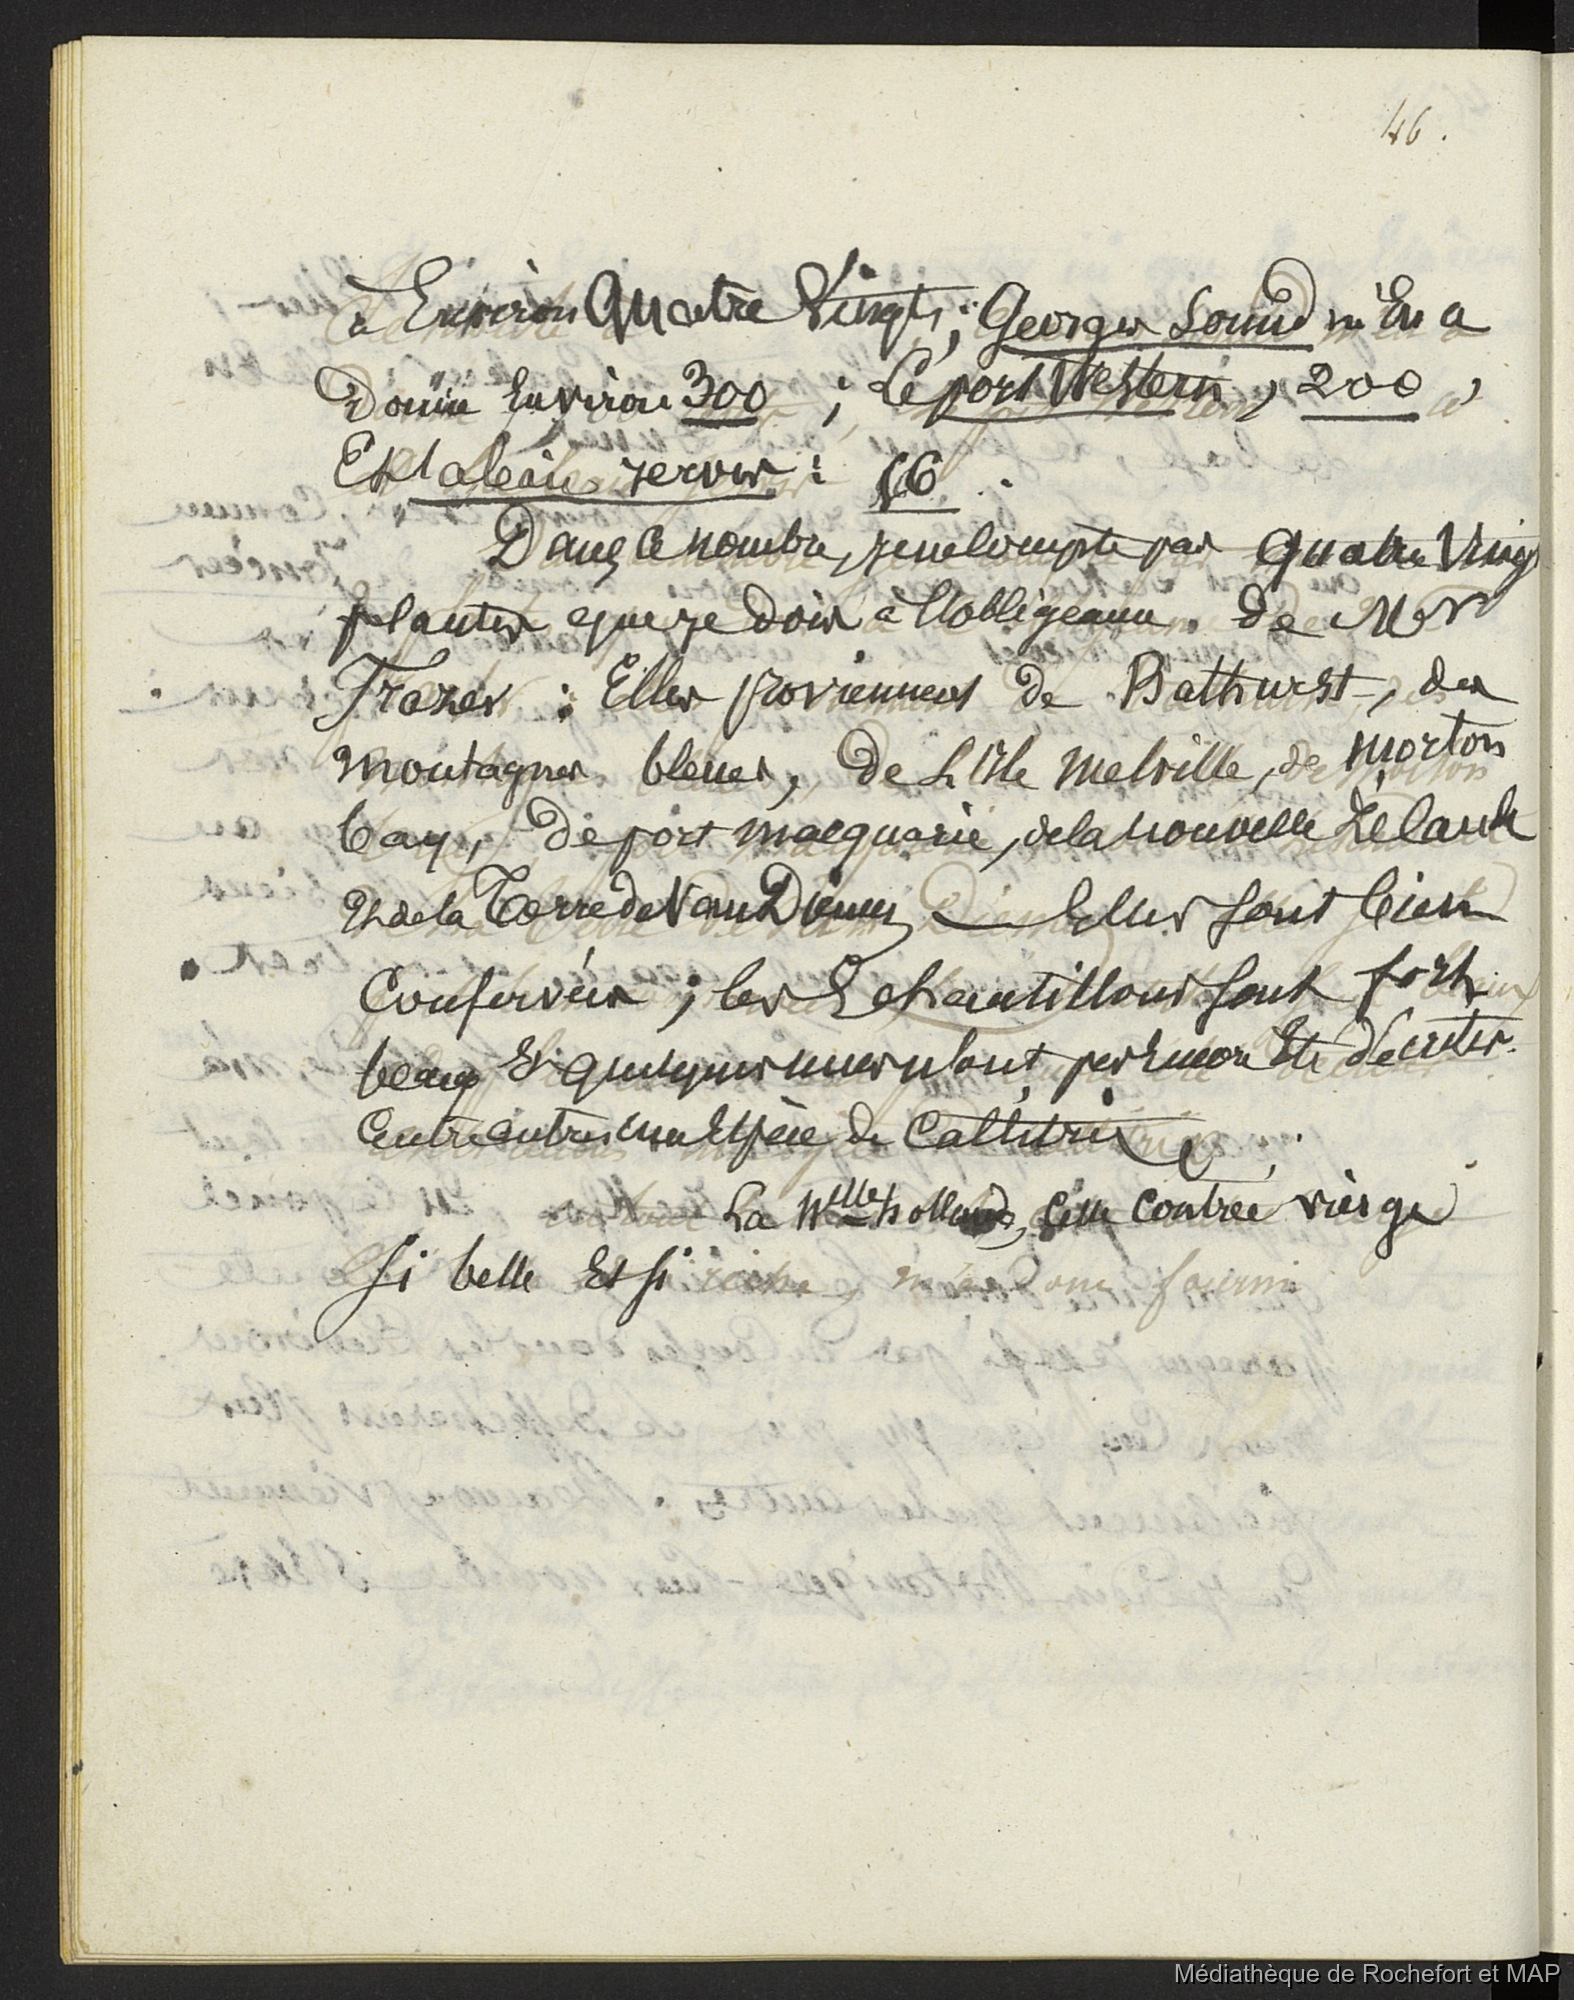 46.
à Environ Quatre Vingts ; Georges Sound m'En a
Donné Environ 300 ; Le port Western, 200,
Et la baie Jervis : 56.
Dans ce nombre, je ne compte pas quatre Vingt
plantes que je dois à l'obligeance de Mr
Frazer : Elles proviennent de Bathurst, des
montagnes bleues, de L'Isle Melville, de Morton
bay, de port macquarie, de la nouvelle Zélande
Et de la Terre de Van Diemen Elles sont bien
Conservées ; les Echantillons sont fort
beaux Et quelques unes n'ont pas Encore Eté décrites
Entre autres une Espèce de Callitrix
La Nlle hollande, Cette Contrée vierge
Si belle Et si riche, m'a donc fourni
Médiathèque de Rochefort et MAP